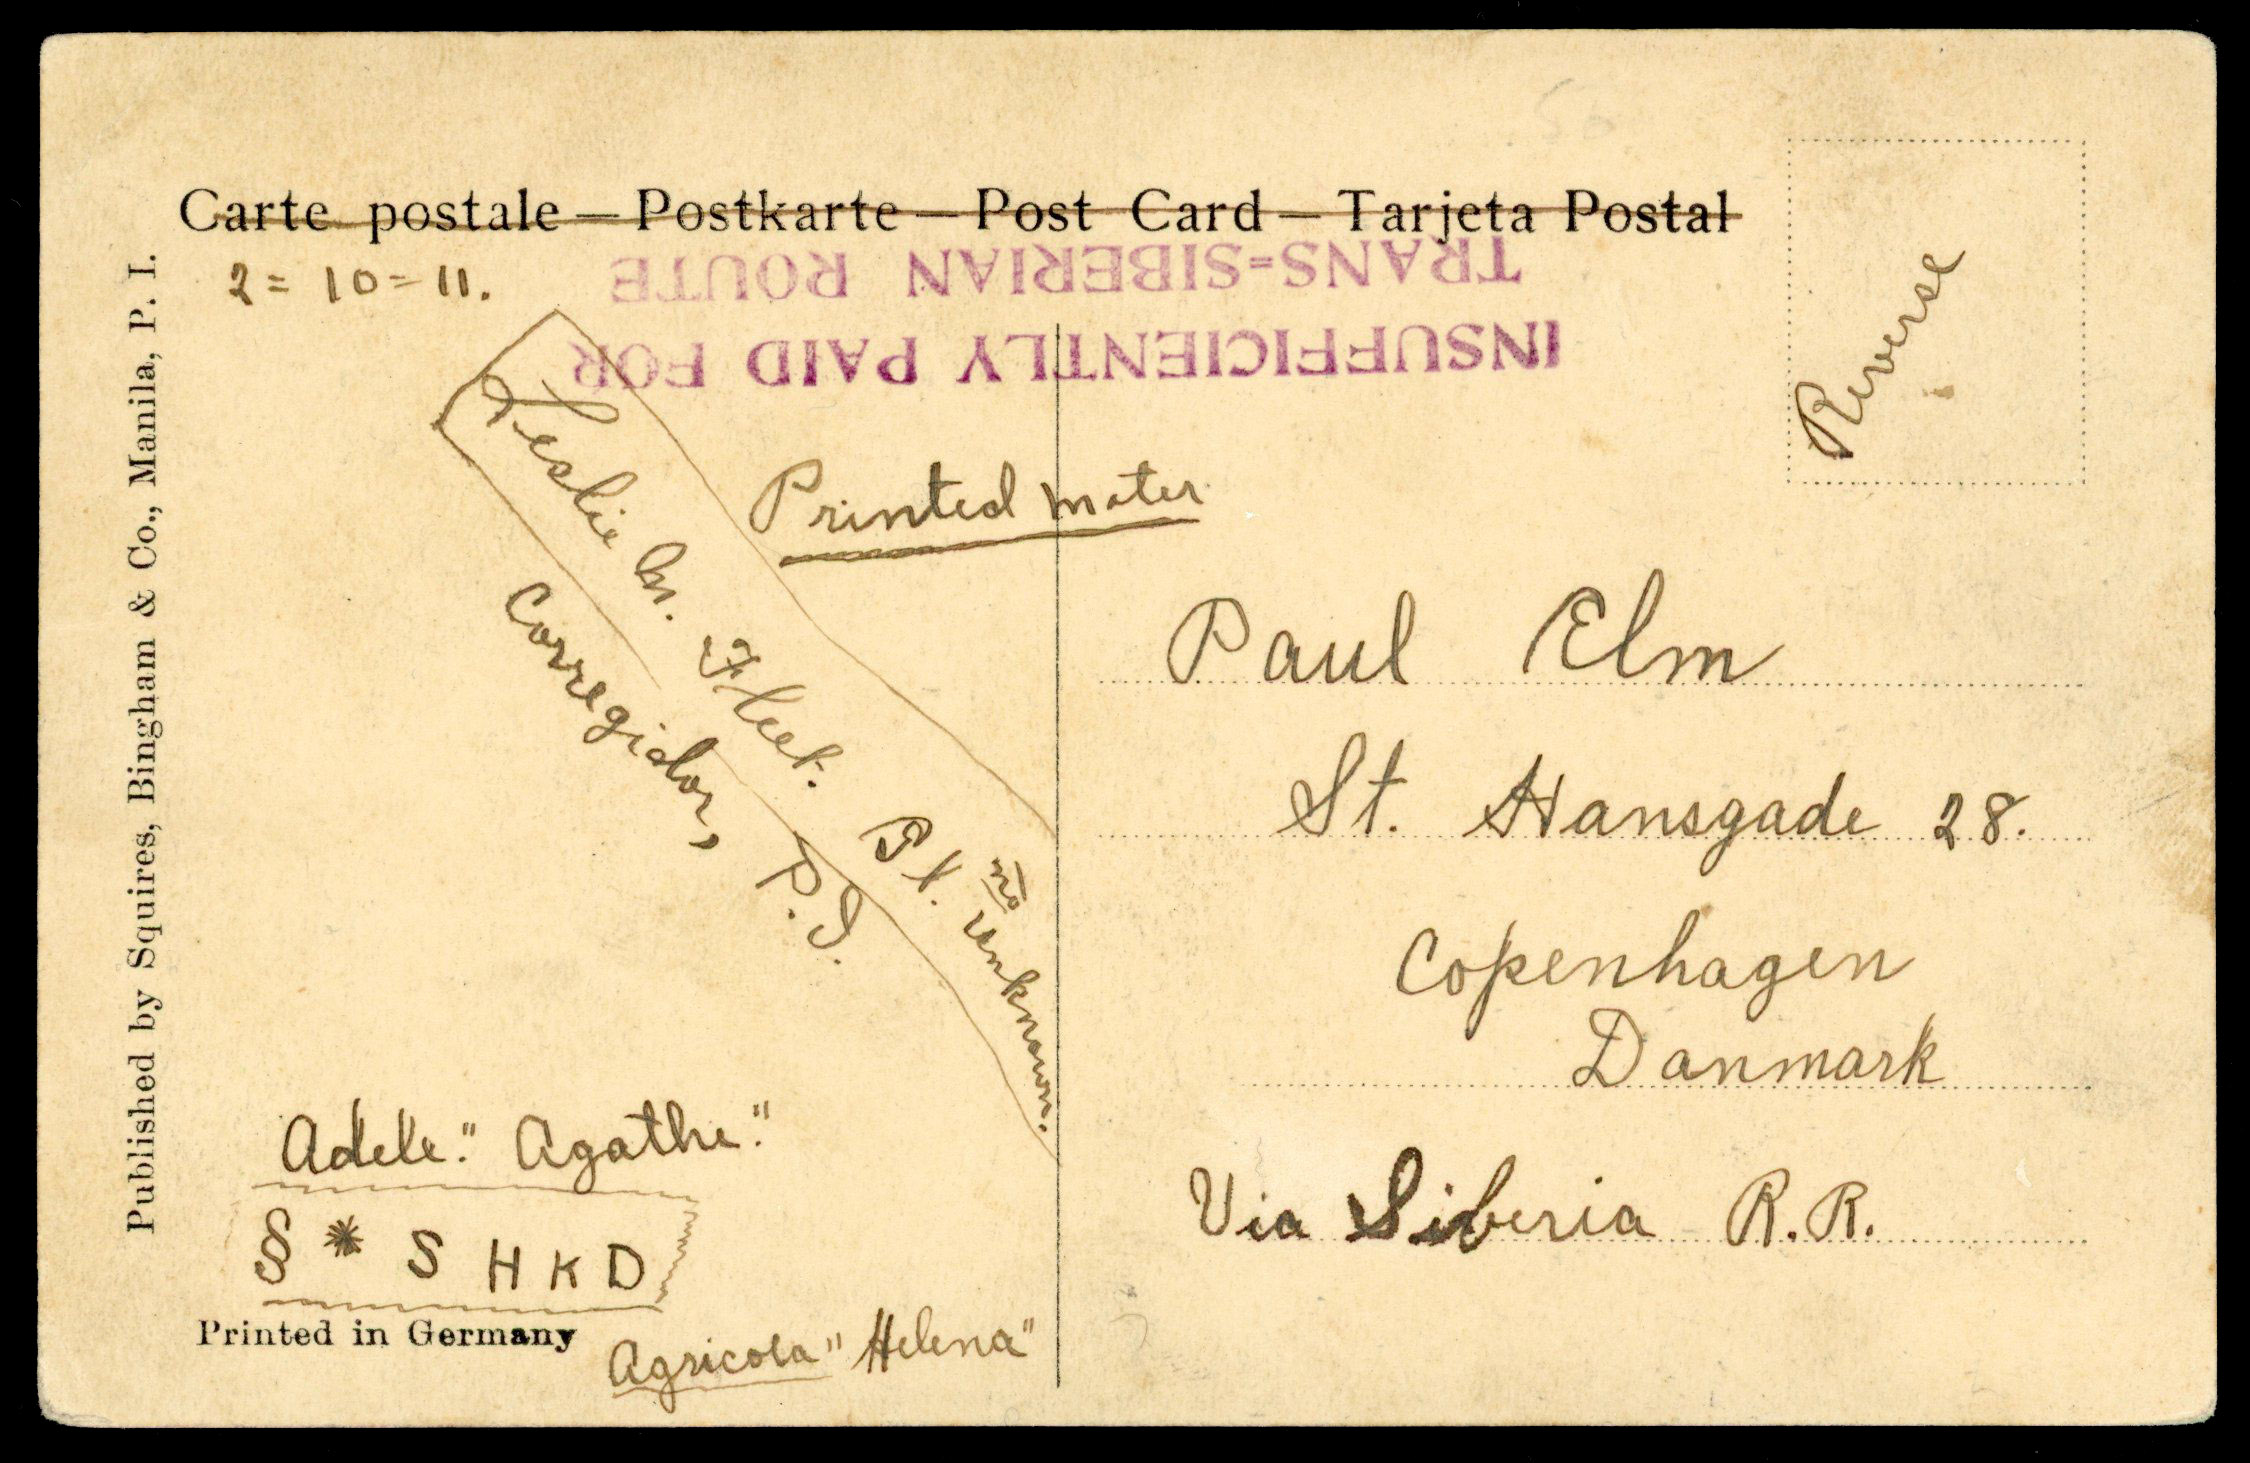 Carte postale — Postkarte — Post Card — Tarjeta Postal
2 = 10 = 11.
INSUFFICIENTLY PAID FOR
TRANS=SIBERIAN ROUTE
Reverse
Printed mater
Leslie M. Fleet. Bx. no unknown.
Corregidor, P.I.
Paul Elm
St. Hansgade 28.
Copenhagen
Danmark
Via Siberia R.R.
Adele." Agathe."
§ * S H K D
Agricola" Helena"
Printed in Germany
Published by Squires, Bingham & Co., Manila, P. I.